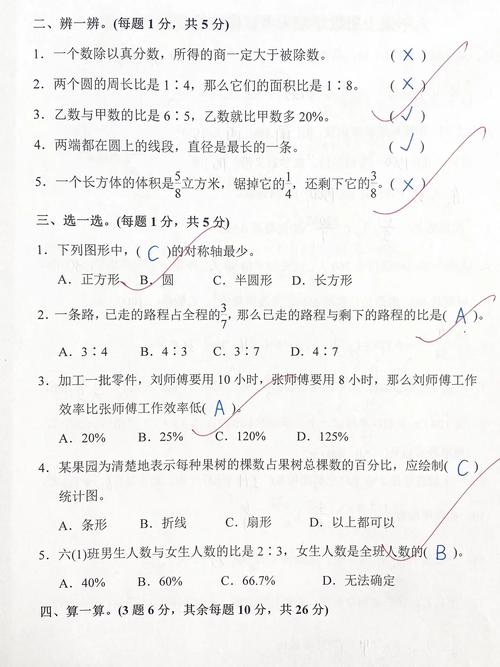 二、辨一辨。(每题 1 分，共 5 分)
1．一个数除以真分数，所得的商一定大于被除数。 ( X )
2．两个圆的周长比是 1∶4，那么它们的面积比是 1∶8。 ( X )
3．乙数与甲数的比是 6∶5，乙数就比甲数多 20%。 ( √ )
4．两端都在圆上的线段，直径是最长的一条。 ( √ )
5．一个长方体的体积是5/8立方米，锯掉它的1/4，还剩下它的3/8。 ( X )
三、选一选。(每题 1 分，共 5 分)
1．下列图形中，( C )的对称轴最少。
A．正方形 B．圆 C．半圆形 D．长方形
2．一条路，已走的路程占全程的3/7，那么已走的路程与剩下的路程的比是( A )。
A．3∶4 B．4∶3 C．3∶7 D．4∶7
3．加工一批零件，刘师傅要用 10 小时，张师傅要用 8 小时，那么刘师傅工作
效率比张师傅工作效率低( A )。
A．20% B．25% C．120% D．125%
4．某果园为清楚地表示每种果树的棵数占果树总棵数的百分比，应绘制( C )
统计图。
A．条形 B．折线 C．扇形 D．以上都可以
5．六(1)班男生人数与女生人数的比是 2∶3，女生人数是全班人数的( B )。
A．40% B．60% C．66.7% D．无法确定
四、算一算。(3 题 6 分，其余每题 10 分，共 26 分)